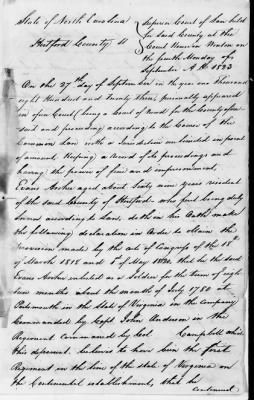 State of North Carolina
Hertford County Ss.
Superior Court of Law held
for said County at the
Court House in Winton on
the fourth Monday of
September A.D. 1823
On the 27th day of September in the year one thousand
eight Hundred and Twenty Three personally appeared
in open Court (being a Court of Record for the County afore
said and proceeding according to the Course of the
Common Law with a Jurisdiction unlimited in point
of amount keeping a Record of its proceedings and
having the power of fine and imprisonment)
Evans Archer aged about Sixty nine years resident
of the said County of Hertford who first being duly
Sworn according to Law, doth on his Oath make
the following declaration in Order to obtain the
provision made by the act of Congress of the 18th
of March 1818 and 1st of May 1820, that he the said
Evans Archer enlisted as a Soldier for the term of eigh
teen months about the month of July 1780 at
Portsmouth in the State of Virginia in the Company
Commanded by Capt John Anderson in the
Regiment Commanded by Col Campbell which
this deponent believes to have been the first
Regiment in the line of the State of Virginia on
the Continental establishment, that he
continued